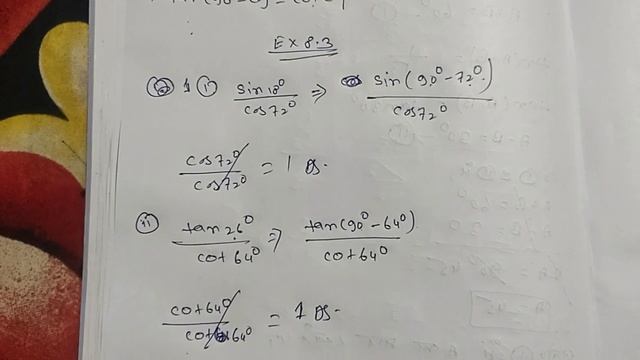 Ex 8.3
1 (i) sin18°/cos72° ⇒ sin(90°-72°)/cos72°
cos72°/cos72° = 1
(ii) tan26°/cot64° ⇒ tan(90°-64°)/cot64°
cot64°/cot64° = 1